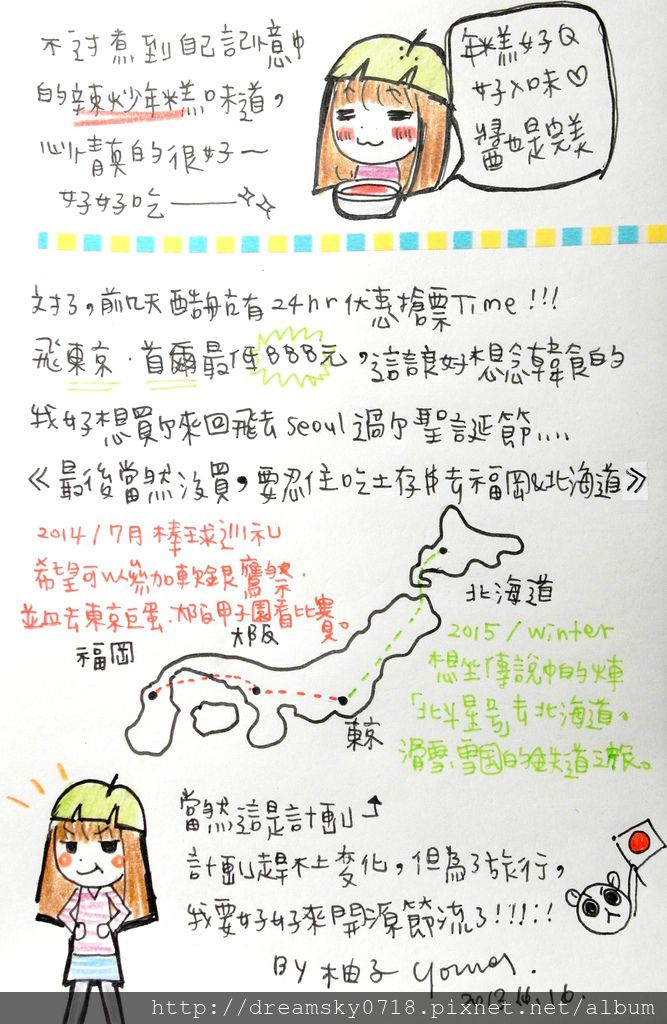 不過煮到自己記憶中
的辣炒年糕味道，
心情真的很好～
好好吃——
年糕好Q
好入味♡
醬也是完美
對了，前幾天酷航有24hr優惠搶票Time!!!
飛東京．首爾最低888元，這讓好想念韓食的
我好想買ㄌ來回飛去seoul過ㄌ聖誕節....
《最後當然沒買，要忍住吃土存$去福岡&北海道》
2014/7月 棒球巡礼
希望可以參加軟銀鷹祭．
並且去東京巨蛋．大阪甲子園看比賽。
福岡
大阪
東京
北海道
2015/winter
想坐傳說中的火車
「北斗星号」去北海道。
滑雪．雪国的鉄道之旅。
當然這是計劃
計劃趕不上變化，但為了旅行，
我要好好來開源節流了!!!!!
BY 柚子
http://dreamsky0718.pixnet.net/album